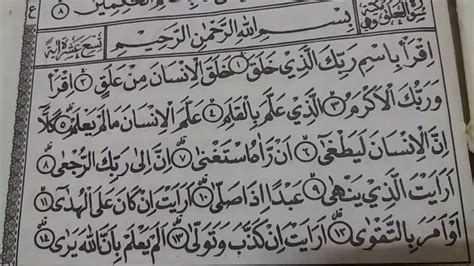 الحكمين ٨
سورة العلق مكية وهي
بِسْمِ اللهِ الرَّحْمٰنِ الرَّحِيْمِ
تسع عشرة اية
اِقْرَأْ بِاسْمِ رَبِّكَ الَّذِيْ خَلَقَ ١ خَلَقَ الْاِنْسَانَ مِنْ عَلَقٍ ٢ اِقْرَأْ
وَرَبُّكَ الْاَكْرَمُ ٣ الَّذِيْ عَلَّمَ بِالْقَلَمِ ٤ عَلَّمَ الْاِنْسَانَ مَا لَمْ يَعْلَمْ ٥ كَلَّا
اِنَّ الْاِنْسَانَ لَيَطْغٰى ٦ اَنْ رَّاٰهُ اسْتَغْنٰى ٧ اِنَّ اِلٰى رَبِّكَ الرُّجْعٰى ٨
اَرَاَيْتَ الَّذِيْ يَنْهٰى ٩ عَبْدًا اِذَا صَلّٰى ١٠ اَرَاَيْتَ اِنْ كَانَ عَلَى الْهُدٰى ١١
اَوْ اَمَرَ بِالتَّقْوٰى ١٢ اَرَاَيْتَ اِنْ كَذَّبَ وَتَوَلّٰى ١٣ اَلَمْ يَعْلَمْ بِاَنَّ اللهَ يَرٰى ١٤